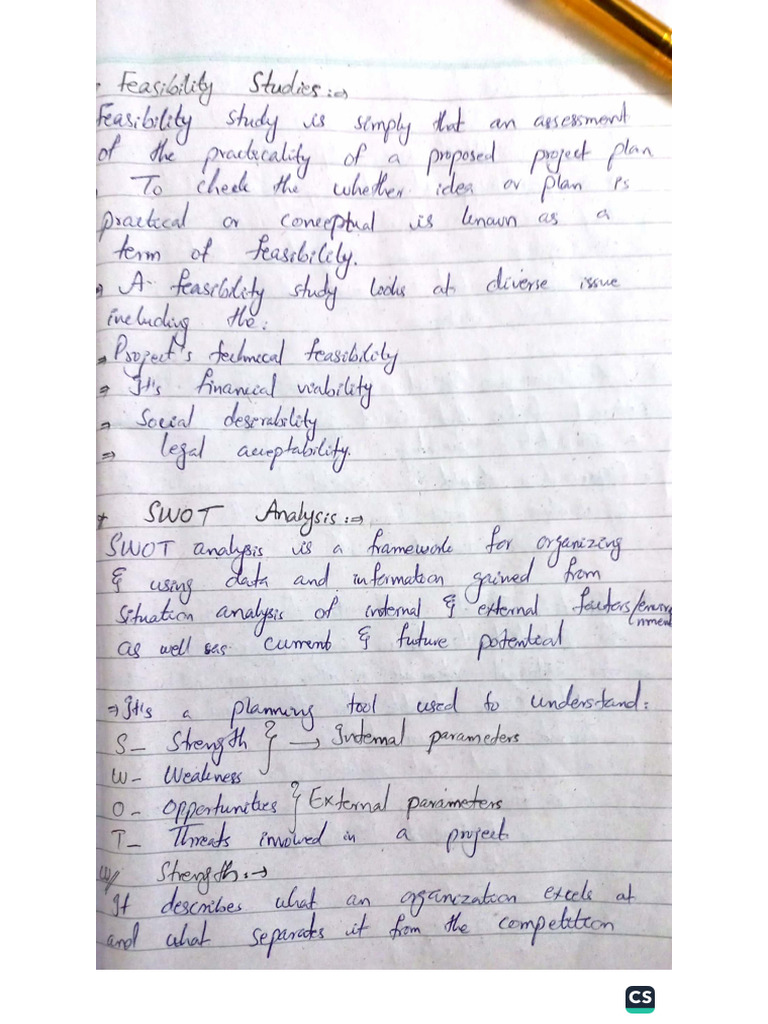 · Feasibility Studies:⇒
Feasibility study is simply that an assessment
of the practicality of a proposed project plan
. To check the whether idea or plan is
practical or conceptual is known as a
term of feasibility.
⇒ A feasibility study looks at diverse issue
including the:
⇒ Project's technical feasibility
⇒ It's financial viability
⇒ Social desirability
⇒ legal acceptability.
* SWOT Analysis:⇒
SWOT analysis is a framework for organizing
& using data and information gained from
situation analysis of internal & external factors/environment
as well as current & future potential
⇒ It's a planning tool used to understand:
S- Strength } → Internal parameters
W- Weakness
O- Opportunities } External parameters
T- Threats involved in a project
Strength:→
It describes what an organization excels at
and what separates it from the competition
CS